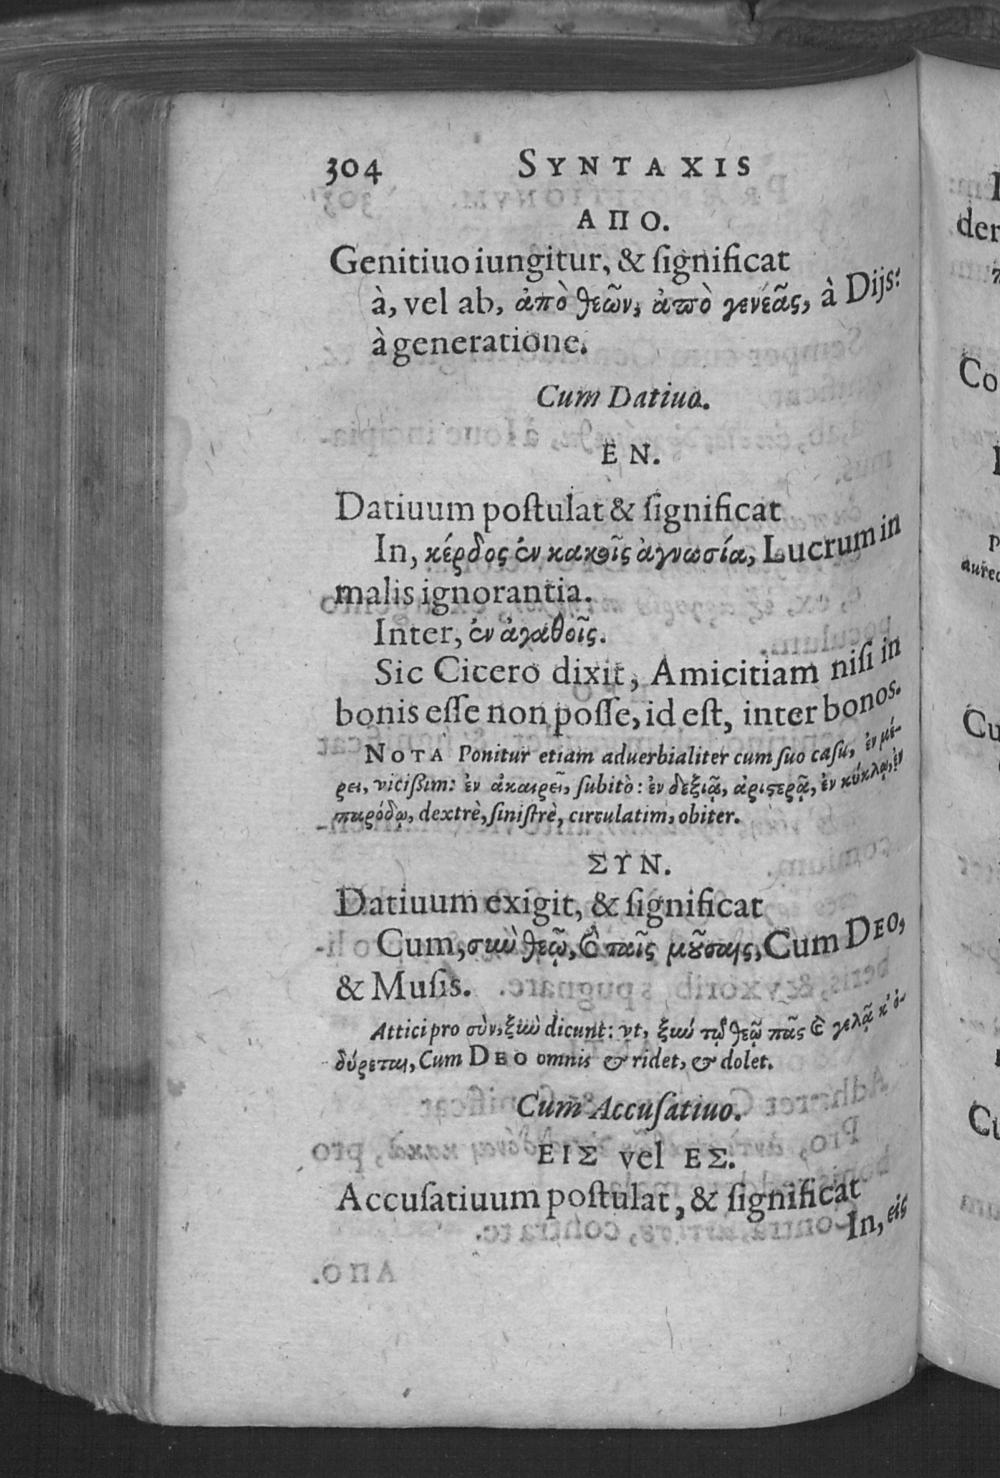 304 SYNTAXIS
ΑΠΟ.
Genitiuo iungitur, & ſignificat
à, vel ab, ἀπὸ θεῶν, ἀπὸ γενεᾶς, à Dijs:
à generatione.
Cum Datiuo.
ΕΝ.
Datiuum poſtulat & ſignificat
In, κέρδος ἐν κακοῖς ἀγνωσία, Lucrum in
malis ignorantia.
Inter, ἐν ἀγαθοῖς.
Sic Cicero dixit, Amicitiam niſi in
bonis eſſe non poſſe, id eſt, inter bonos.
NOTA Ponitur etiam aduerbialiter cum ſuo caſu, ἐν μέ-
ρει, viciſſim: ἐν ἀκαιρεῖ, ſubitò: ἐν δεξιᾷ, ἀριστερᾷ, ἐν κύκλῳ, ἐν
παρόδῳ, dextrè, ſiniſtrè, circulatim, obiter.
ΣΥΝ.
Datiuum exigit, & ſignificat
Cum, σὺν θεῷ, καὶ ταῖς μούσαις, Cum DEO,
& Muſis.
Attici pro σὺν, ξὺν dicunt: vt, ξὺν τῷ θεῷ πᾶς καὶ γελᾷ κ' ὀ-
δύρεται, Cum DEO omnis & ridet, & dolet.
Cum Accuſatiuo.
ΕΙΣ vel ΕΣ.
Accuſatiuum poſtulat, & ſignificat
In, εἰς